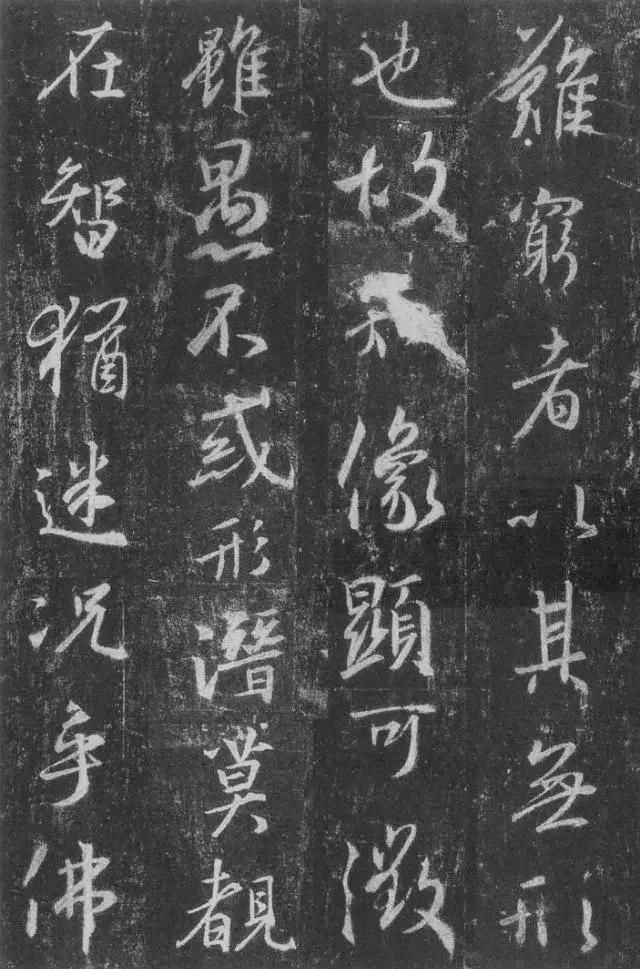 難窮者以其無形
也故像顯可徵
雖愚不或形潛莫覩
在智猶迷況乎佛